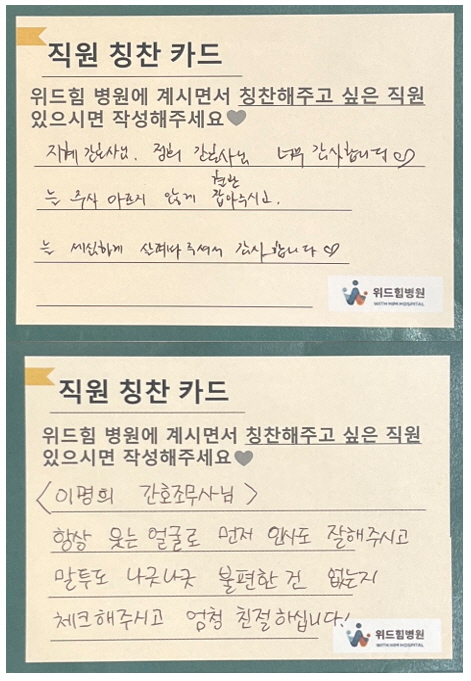 직원 칭찬 카드
위드힘 병원에 계시면서 칭찬해주고 싶은 직원
있으시면 작성해주세요
간호사님. 간호사님 너무 감사합니다
늘 주사 아프지 않게 잡아주시고.
혈관
늘 세심하게 살펴봐 주셔서 감사합니다
위드힘병원
WITH HIM HOSPITAL
직원 칭찬 카드
위드힘 병원에 계시면서 칭찬해주고 싶은 직원
있으시면 작성해주세요
<이명희 간호조무사님>
항상 웃는 얼굴로 먼저 인사도 잘해주시고
말투도 나긋나긋 불편한건 없는지
체크해주시고 엄청 친절하십니다!
위드힘병원
WITH HIM HOSPITAL